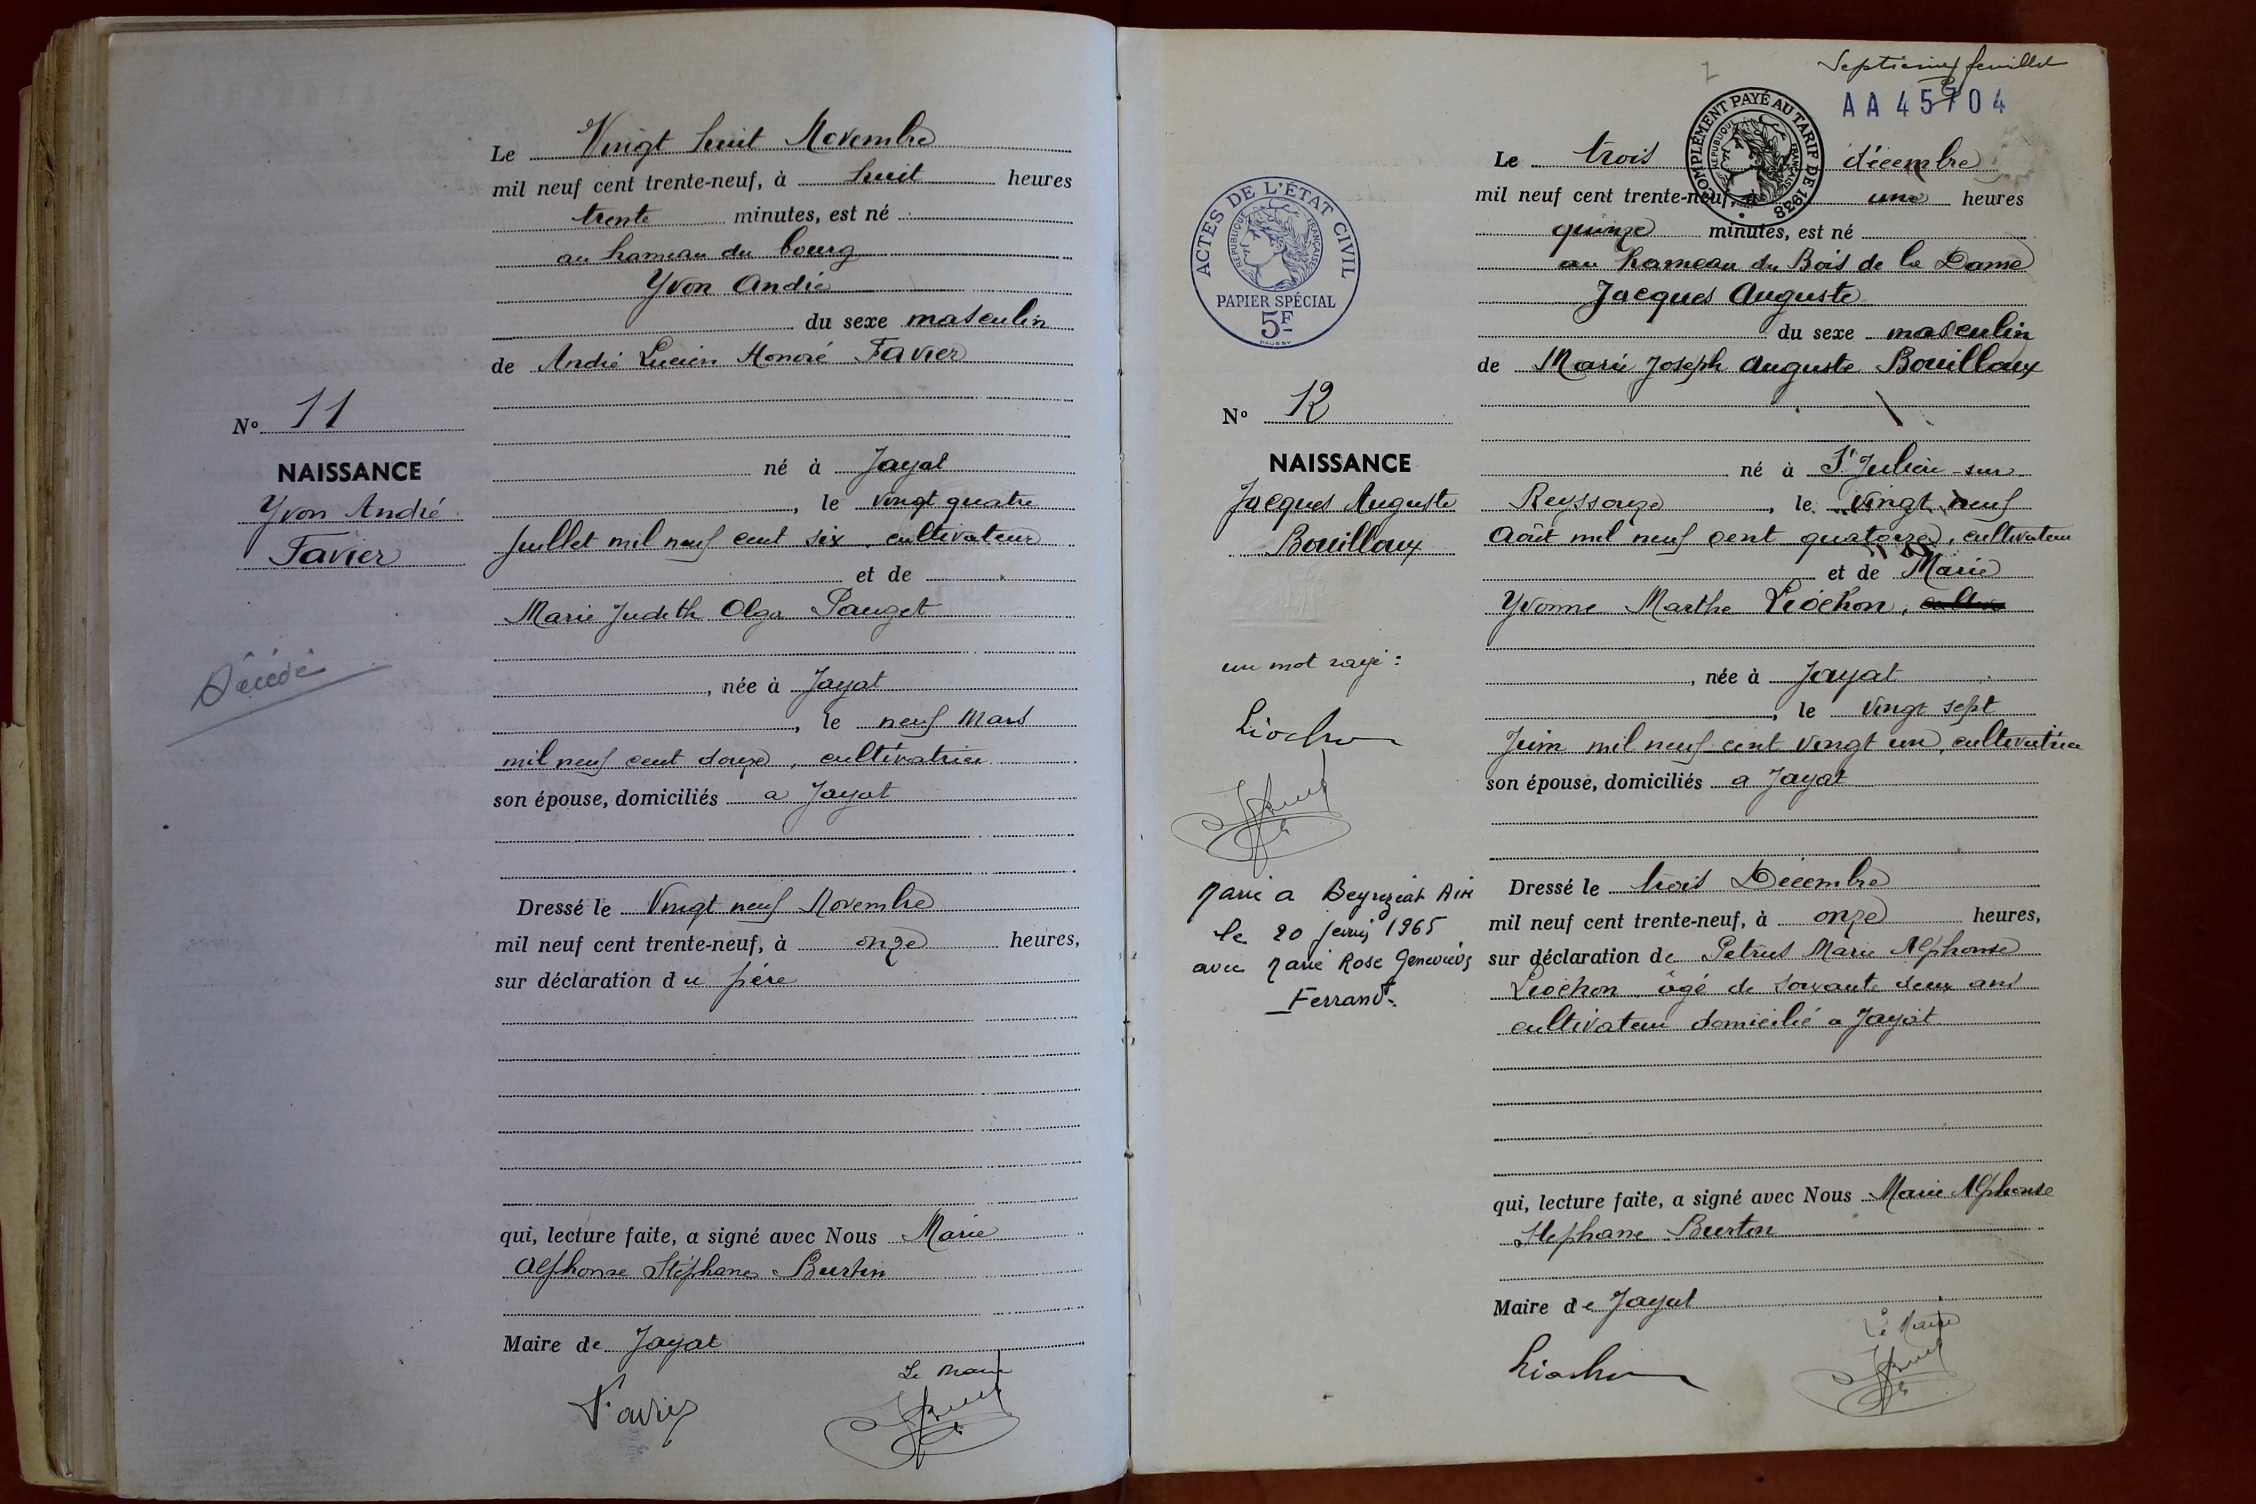 Le Vingt huit Novembre
mil neuf cent trente-neuf, à huit heures
trente minutes, est né
au hameau du bourg
Yvon André
du sexe masculin
de André Lucien Honoré Favier
N° 11
NAISSANCE
Yvon André
Favier
né à Jayat
, le vingt quatre
Juillet mil neuf cent six, cultivateur
et de
Marie Judith Olga Pauget
Décédé
, née à Jayat
, le neuf Mars
mil neuf cent douze, cultivatrice
son épouse, domiciliés a Jayat
Dressé le Vingt neuf Novembre
mil neuf cent trente-neuf, à onze heures,
sur déclaration du père
qui, lecture faite, a signé avec Nous Marie
Alphonse Stéphane Burtin
Maire de Jayat
Le Maire
Favier
Septième feuillet
7
AA 45704
COMPLÉMENT PAYÉ AU TARIF DE 1938
RÉPUBLIQUE FRANÇAISE
Le trois décembre
mil neuf cent trente-neuf, à une heures
quinze minutes, est né
au hameau du Bois de la Dame
Jacques Auguste
du sexe masculin
de Marie Joseph Auguste Bouilloux
ACTES DE L'ÉTAT CIVIL
RÉPUBLIQUE FRANÇAISE
PAPIER SPÉCIAL
5F
N° 12
NAISSANCE
Jacques Auguste
Bouilloux
né à St Julien-sur
Reyssouze, le vingt neuf
Août mil neuf cent quatorze, cultivateur
et de Marie
Yvonne Marthe Liochon,
un mot rayé :
Liochon
, née à Jayat
, le vingt sept
Juin mil neuf cent vingt un, cultivatrice
son épouse, domiciliés a Jayat
Marié a Beyreziat Ain
le 20 février 1965
avec Marie Rose Geneviève
Ferrand.
Dressé le trois Décembre
mil neuf cent trente-neuf, à onze heures,
sur déclaration de Petrus Marie Alphonse
Liochon âgé de soixante deux ans
cultivateur domicilié a Jayat
qui, lecture faite, a signé avec Nous Marie Alphonse
Stephane Burtin
Maire de Jayat
Le Maire
Liochon